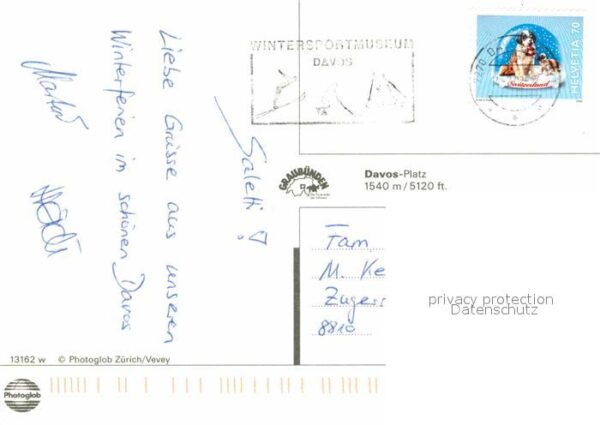 Liebe Grüsse aus unseren
Winterferien im schönen Davos
Saleti!
WINTERSPORTMUSEUM
DAVOS
HELVETIA 70
Switzerland
GRAUBÜNDEN
Davos-Platz
1540 m / 5120 ft.
Fam
M. Ke
Zugers
8810
privacy protection
Datenschutz
13162 w © Photoglob Zürich/Vevey
Photoglob